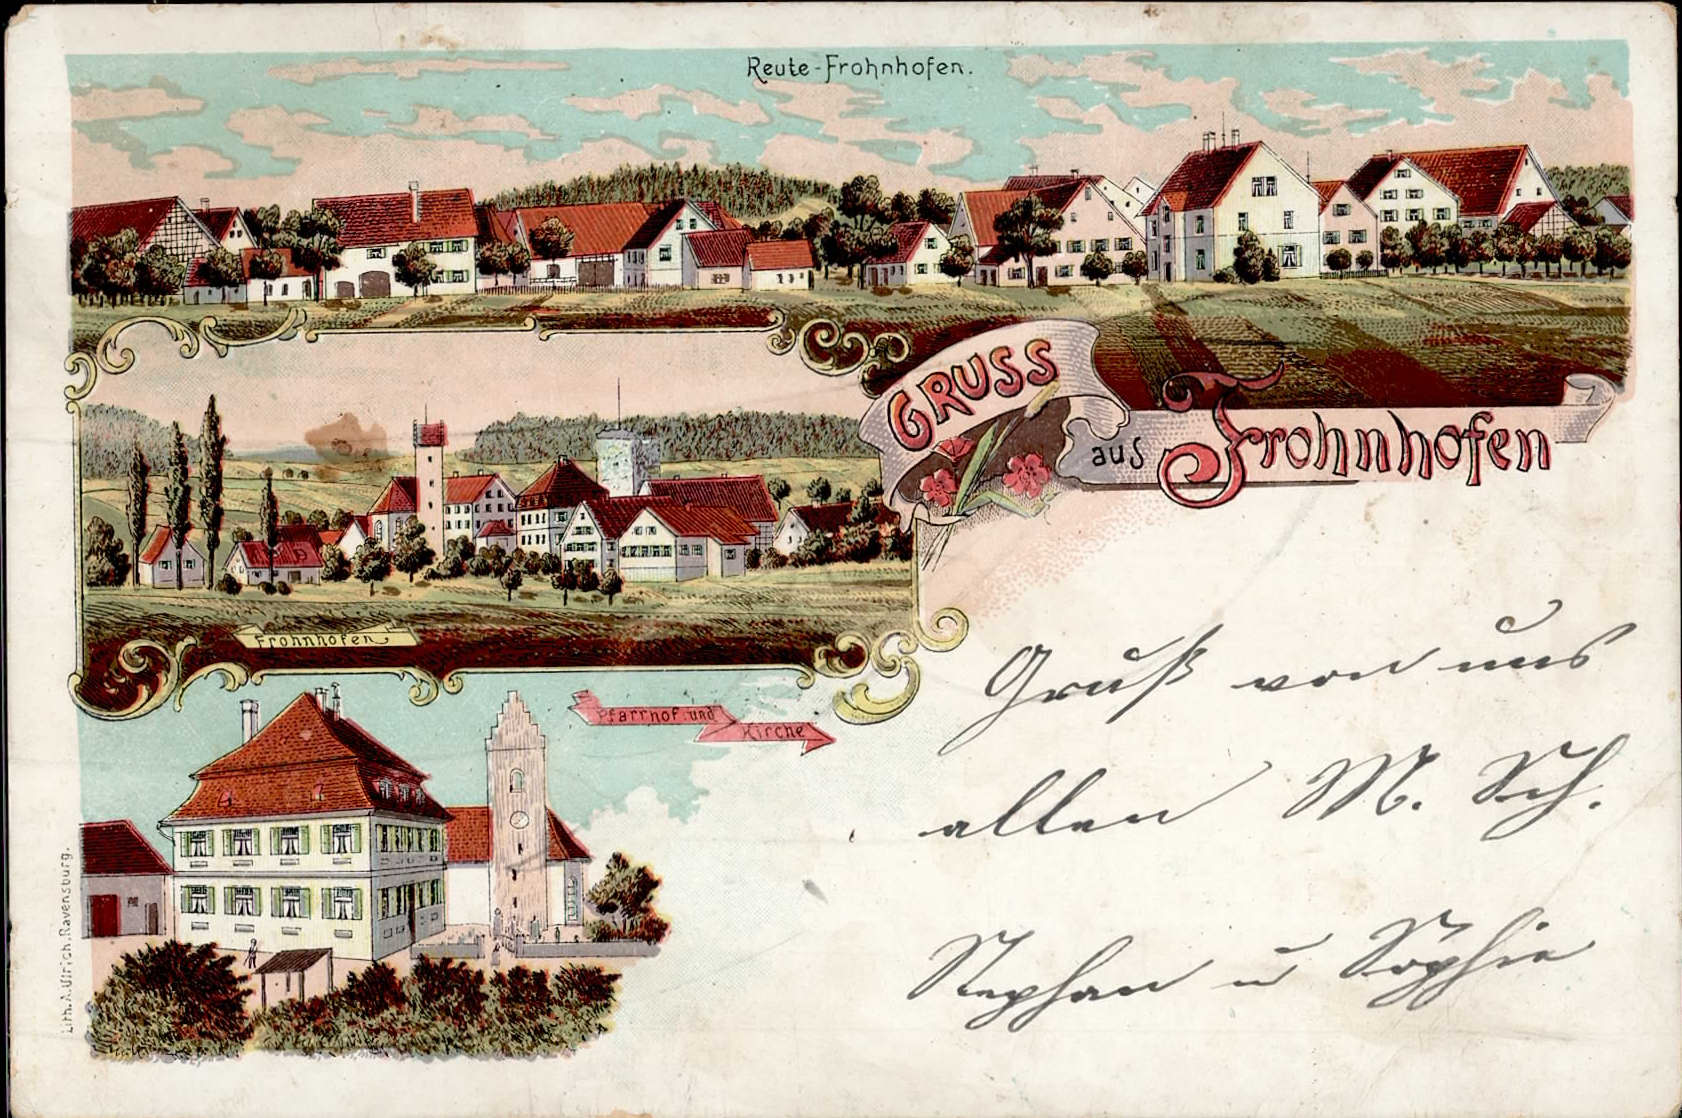 Reute-Frohnhofen.
GRUSS
aus Frohnhofen
Frohnhofen
Pfarrhof und
Kirche
Lith. A. Ulrich, Ravensburg.
Gruß von uns
allen M. Sch.
Stephan u Sophie